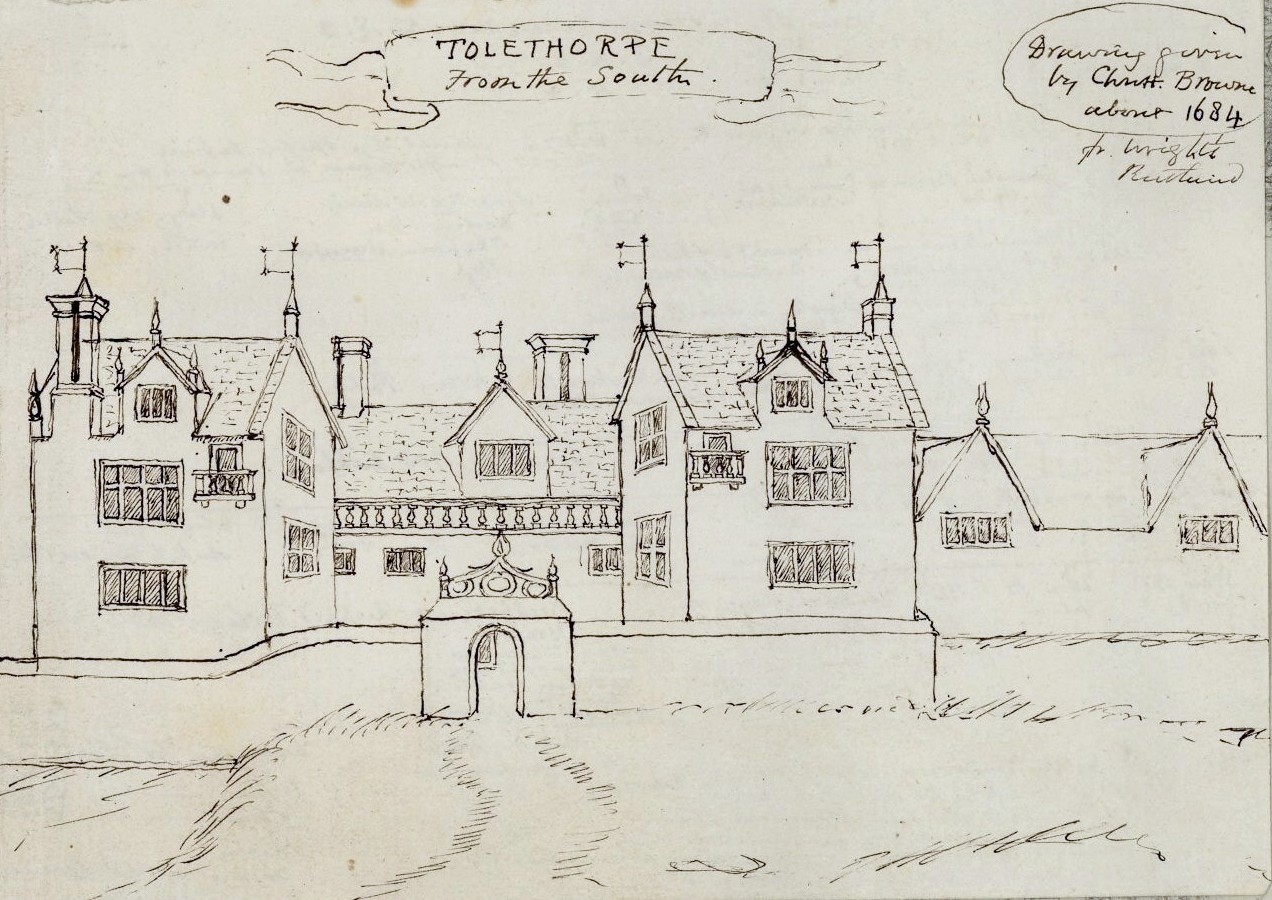 TOLETHORPE
From the South.
Drawing given
by Christr. Browne
about 1684
fr. Wright's
Rutland